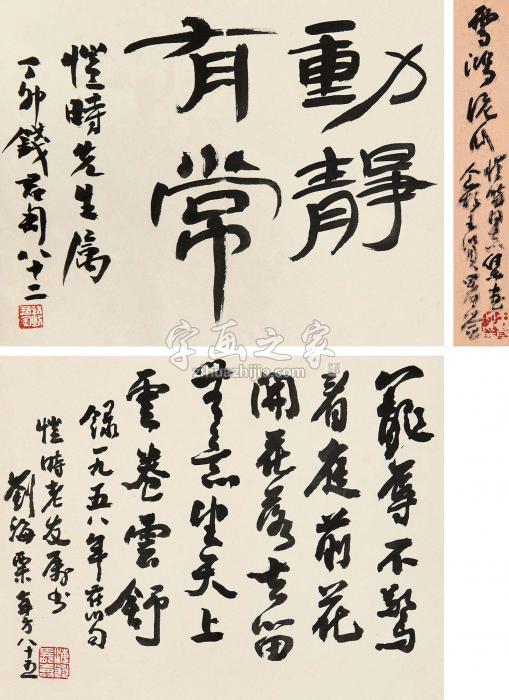 動靜
有常
愷時先生属
丁卯錢君匋八十二
雪鴻泥爪
寵辱不驚
看庭前花
開花落去留
無意望天上
雲卷雲舒
錄一九五八年舊句
愷時老友屬書
劉海粟年方八十五
字画之家
zihuazhijia.com